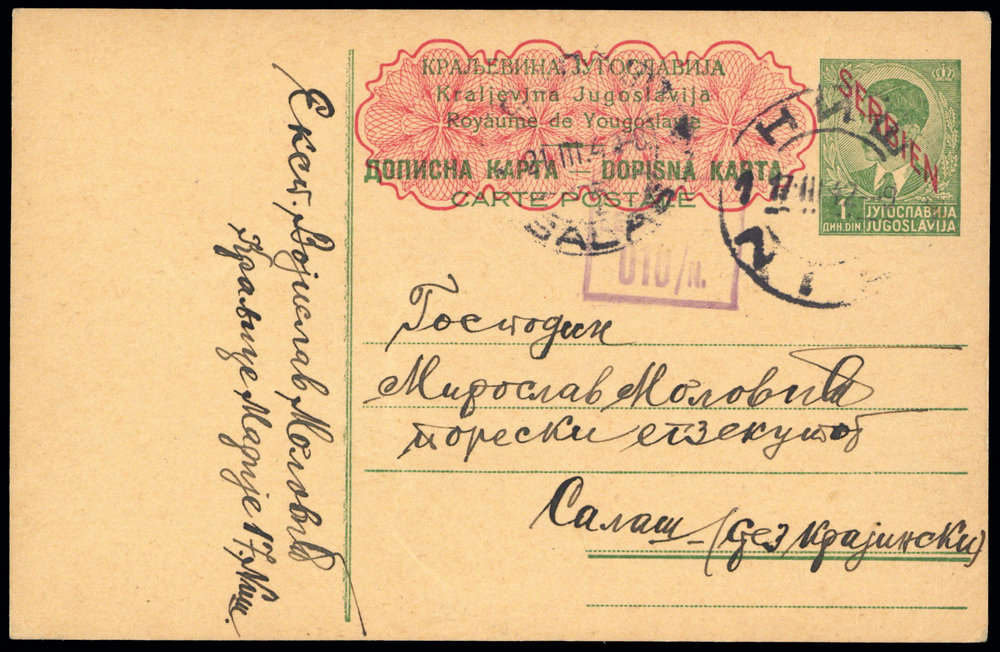 КРАЉЕВИНА ЈУГОСЛАВИЈА
Kraljevina Jugoslavija
Royaume de Yougoslavie
ДОПИСНА КАРТА — DOPISNA KARTA
CARTE POSTALE
SERBIEN
1
ДИН. DIN
ЈУГОСЛАВИЈА
JUGOSLAVIJA
SALAŠ
Господин
Мирослав Моловић
порески егзекутор
Салаш (срез крајински)
Експ. Војислав Моловић
Краљице Марије 17, Ниш.